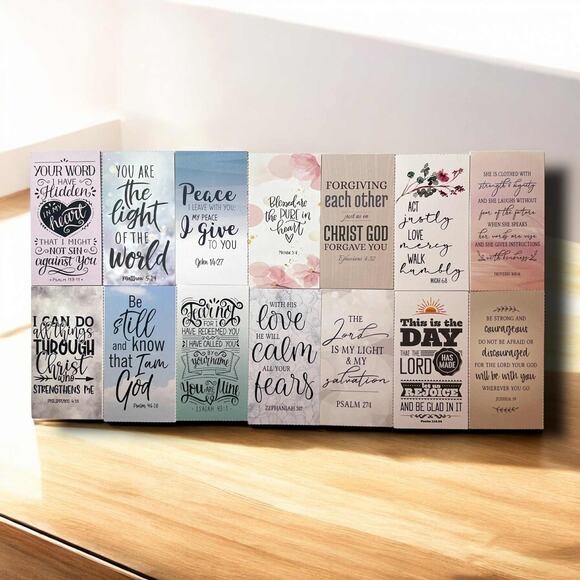 YOUR WORD
I HAVE
Hidden
IN MY
heart
THAT I MIGHT
NOT SIN
against You
PSALM 119:11
YOU ARE
the
light
OF THE
World
Matthew 5:14
Peace
I LEAVE WITH YOU;
MY PEACE
I give
TO YOU
John 14:27
Blessed are
the PURE in
heart
FORGIVING
each other
just as in
CHRIST GOD
FORGAVE YOU
Ephesians 4:32
ACT
justly
LOVE
mercy
WALK
humbly
MICAH 6:8
SHE IS CLOTHED WITH
strength & dignity
AND SHE LAUGHS WITHOUT
fear of the future
WHEN SHE SPEAKS
her words are wise
AND SHE GIVES INSTRUCTIONS
with kindness
I CAN DO
all things
THROUGH
Christ
WHO
STRENGTHENS ME
PHILIPPIANS 4:13
Be
Still
and know
that I am
God
Psalm 46:10
Fear not
FOR I
HAVE REDEEMED YOU
I HAVE CALLED YOU
by
your name
You are Mine
ISAIAH 43:1
WITH HIS
love
HE WILL
calm
ALL YOUR
fears
ZEPHANIAH 3:17
The
Lord
IS MY LIGHT &
MY
salvation
PSALM 27:1
This is the
DAY
THAT THE
LORD
HAS
MADE
let us
REJOICE
AND BE GLAD IN IT
Psalm 118:24
BE STRONG AND
courageous
DO NOT BE AFRAID OR
discouraged
FOR THE LORD YOUR GOD
will be with you
WHEREVER YOU GO
JOSHUA 1:9